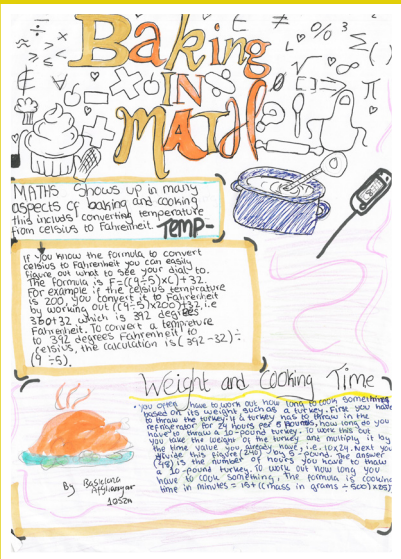 Baking
IN
MATH
MATHS Shows up in many
aspects of baking and cooking
this includs converting temperature
from celsius to Fahrenheit.
TEMP-
If you know the formula to convert
celsius to Fahrenheit you can easily
figure out what to see your dial to.
The formula is F=((9÷5)×C)+32.
For example if the celsius temprature
is 200, you convert it to Fahrenheit
by working out ((9÷5)×200)+32 i.e
360+32 which is 392 degrees
Fahrenheit. To convert a temprature
to 392 degrees Fahrenheit to
celsius, the calculation is (392-32)÷
(9÷5).
Weight and Cooking Time
You often have to work out how long to cook something
based on its weight such as a turkey. First you have
to thraw the turkey. if a turkey has to thraw in the
refrigerator for 24 hours per 5 pounds, how long do you
have to thraw a 10-pound turkey. To work this out
you take the weight of the turkey and multiply it by
the time value you already have, i.e. 10×24. Next you
divide this figure (240) by 5-pound. The answer
(48) is the number of hours you have to thaw
a 10-pound turkey. To work out how long you
have to cook something, The formula is cooking
time in minutes = 15+((mass in grams ÷500)×25)
By
10S2H